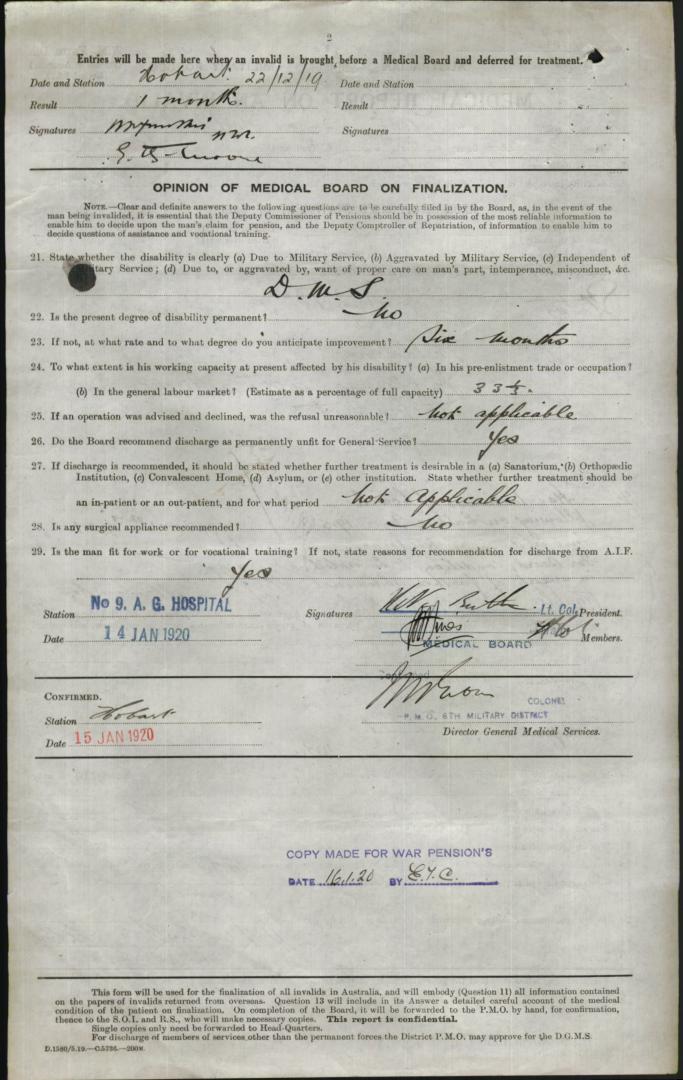 2
Entries will be made here when an invalid is brought before a Medical Board and deferred for treatment.
Date and Station Hobart. 22/12/19 Date and Station
Result 1 month. Result
Signatures Signatures
OPINION OF MEDICAL BOARD ON FINALIZATION.
NOTE.—Clear and definite answers to the following questions are to be carefully filled in by the Board, as, in the event of the
man being invalided, it is essential that the Deputy Commissioner of Pensions should be in possession of the most reliable information to
enable him to decide upon the man's claim for pension, and the Deputy Comptroller of Repatriation, of information to enable him to
decide questions of assistance and vocational training.
21. State whether the disability is clearly (a) Due to Military Service, (b) Aggravated by Military Service, (c) Independent of
Military Service; (d) Due to, or aggravated by, want of proper care on man's part, intemperance, misconduct, &c.
D. M. S.
22. Is the present degree of disability permanent? No
23. If not, at what rate and to what degree do you anticipate improvement? Six months
24. To what extent is his working capacity at present affected by his disability? (a) In his pre-enlistment trade or occupation?
(b) In the general labour market? (Estimate as a percentage of full capacity) 33⅓.
25. If an operation was advised and declined, was the refusal unreasonable? Not applicable
26. Do the Board recommend discharge as permanently unfit for General Service? Yes
27. If discharge is recommended, it should be stated whether further treatment is desirable in a (a) Sanatorium, (b) Orthopædic
Institution, (c) Convalescent Home, (d) Asylum, or (e) other institution. State whether further treatment should be
an in-patient or an out-patient, and for what period Not Applicable
28. Is any surgical appliance recommended? No
29. Is the man fit for work or for vocational training? If not, state reasons for recommendation for discharge from A.I.F.
Yes
Station No 9. A. G. HOSPITAL Signatures Lt. Col. President.
Date 14 JAN 1920 Members.
MEDICAL BOARD
CONFIRMED.
Station Hobart COLONEL
P.M.O. 6TH MILITARY DISTRICT
Date 15 JAN 1920 Director General Medical Services.
COPY MADE FOR WAR PENSION'S
DATE 16.1.20 BY E.Y.C.
This form will be used for the finalization of all invalids in Australia, and will embody (Question 11) all information contained
on the papers of invalids returned from overseas. Question 13 will include in its Answer a detailed careful account of the medical
condition of the patient on finalization. On completion of the Board, it will be forwarded to the P.M.O. by hand, for confirmation,
thence to the S.O.I. and R.S., who will make necessary copies. This report is confidential.
Single copies only need be forwarded to Head-Quarters.
For discharge of members of services other than the permanent forces the District P.M.O. may approve for the D.G.M.S.
D.1580/5.19.—C.5736.—200M.